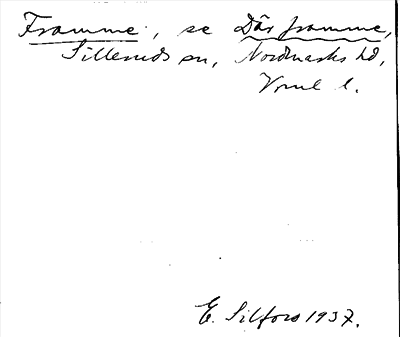 Framme, se Där framme,
Silleruds sn, Nordmarks hd,
Vrml l.
E. Silfors 1937.